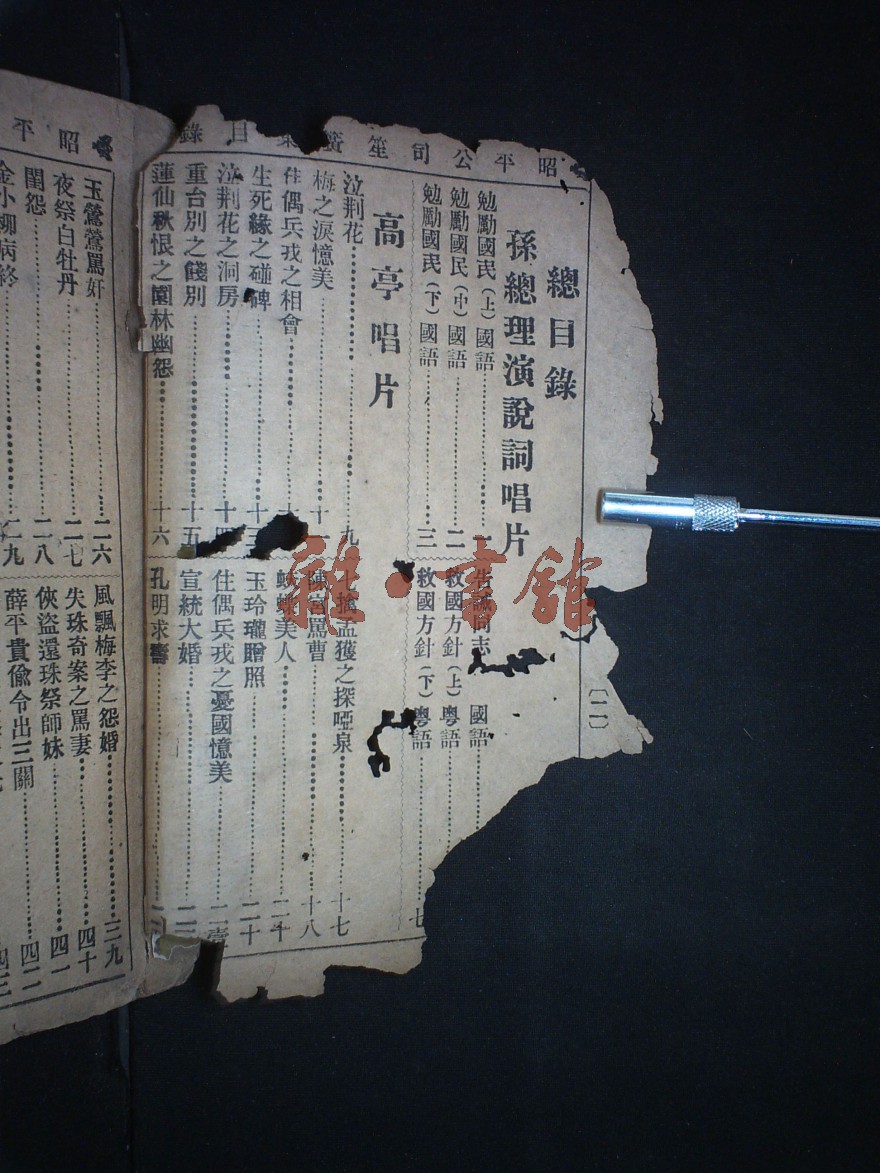 昭平公司笙簧集目錄
總目錄
孫總理演說詞唱片
勉勵國民(上)國語………一
勉勵國民(中)國語………二
勉勵國民(下)國語………三
告誡同志 國語………
救國方針(上)粵語………
救國方針(下)粵語………七
高亭唱片
泣荆花………九
梅之淚憶美………十一
佳偶兵戎之相會………
生死緣之碰碑………十
泣荆花之洞房………十四
重台別之餞別………十五
蓮仙秋恨之園林幽怨………十六
七擒孟獲之探啞泉………十七
陳宮罵曹………十八
蛺蝶美人………二十
玉玲瓏贈照………二十
佳偶兵戎之憂國憶美………二壹
宣統大婚………二
孔明求壽………二
〔二〕
昭平
玉鶯鶯罵奸………二六
夜祭白牡丹………二七
閨怨………二八
金小柳病終………二九
風飄梅李之怨婚………三九
失珠奇案之罵妻………四十
俠盜還珠祭師妹………四一
薛平貴偷令出三關………四二
四三
雜·書館